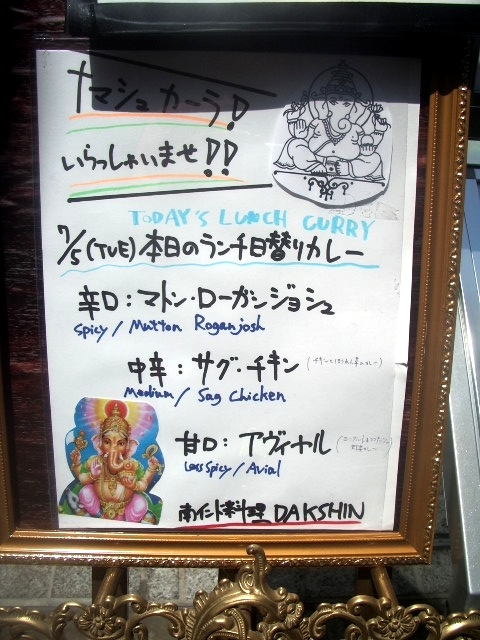 ナマシュカーラ!
いらっしゃいませ!!
TODAY'S LUNCH CURRY
7/5(TUE)本日のランチ日替りカレー
辛口:マトン・ローガンジョシュ
Spicy / Mutton Roganjosh
中辛:サグ・チキン
Medium / Sag Chicken
甘口:アヴィヤル
Less Spicy / Avial
南インド料理 DAKSHIN